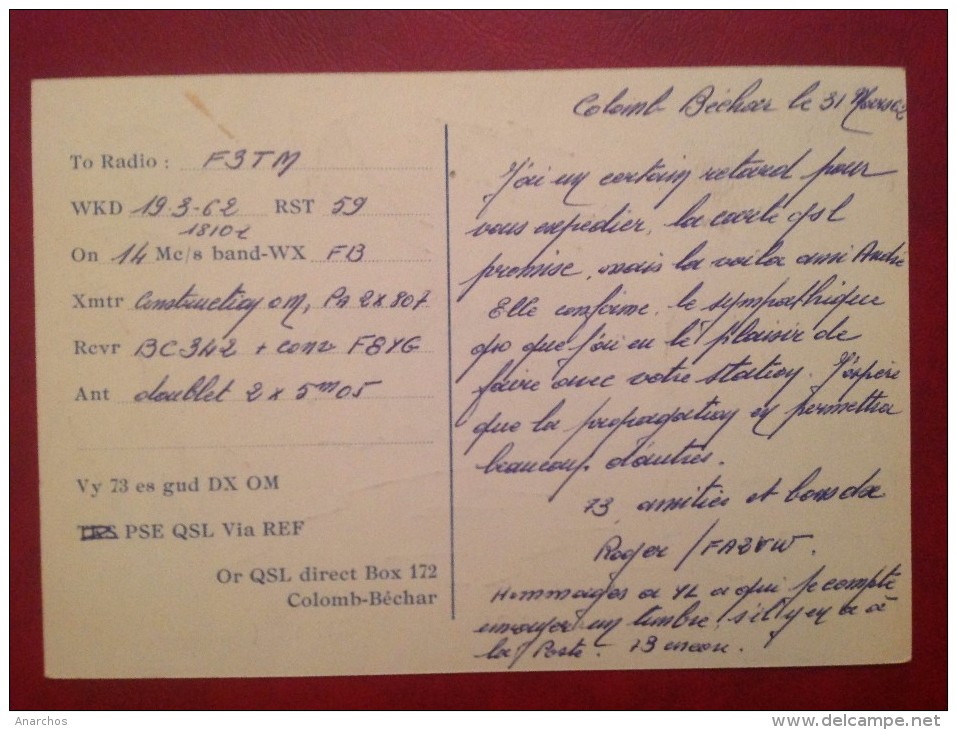 To Radio : F3TM
WKD 19-3-62 RST 59
1810z
On 14 Mc/s band-WX FB
Xmtr Construction OM, PA 2x807
Rcvr BC342 + conv F8YG
Ant doublet 2 x 5m05
Vy 73 es gud DX OM
PSE QSL Via REF
Or QSL direct Box 172
Colomb-Béchar
Colomb Béchar le 31 Mars 62
J'ai un certain retard pour
vous expédier, la carte qsl
promise, mais la voila ainsi André
Elle confirme le sympathique
qso que j'ai eu le plaisir de
faire avec votre station. J'espère
que la propagation en permettra
beaucoup d'autres.
73 amitiés et bons dx
Roger /
Hommages a YL a qui je compte
envoyer un timbre s'il y en a à
la Poste. 73 encore.
Anarchos
www.delcampe.net